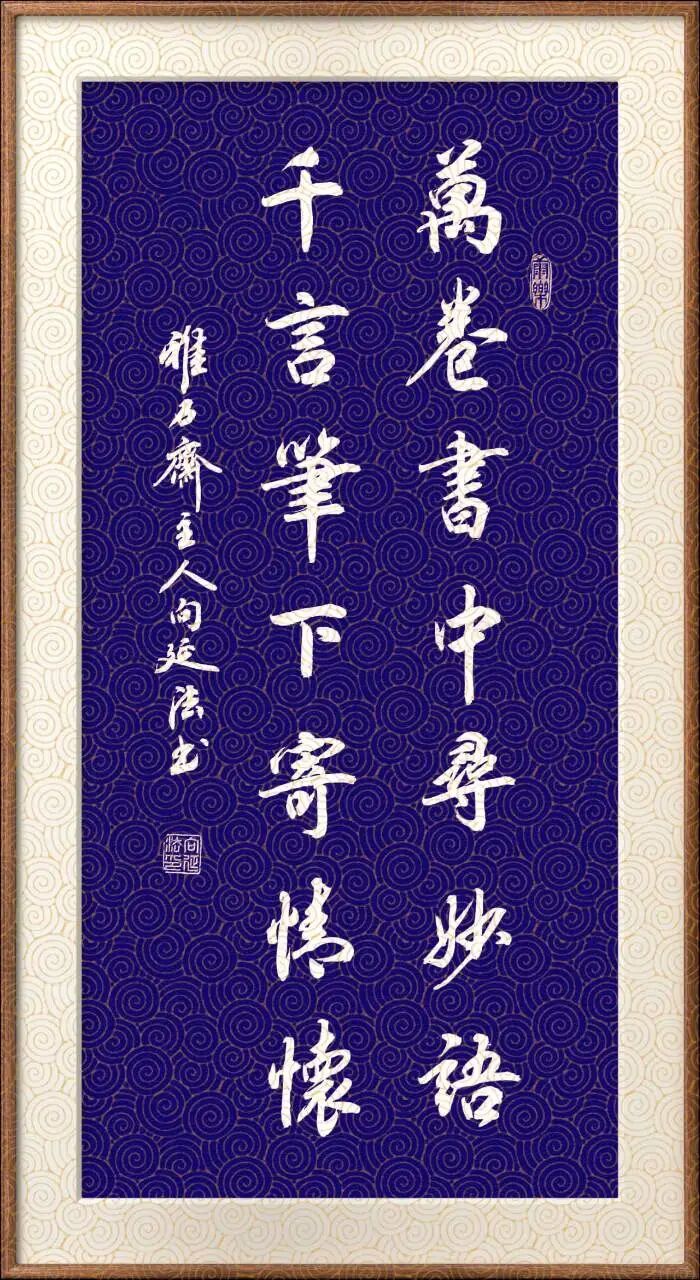 萬卷書中尋妙語
千言筆下寄情懷
雅乃齋主人向延法书
向延法印